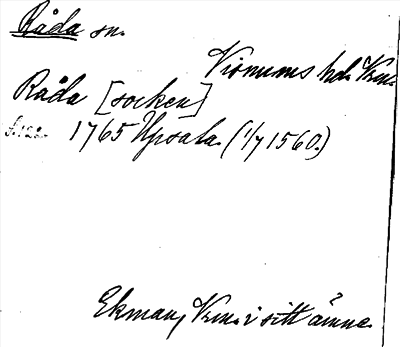 Råda sn.
Visnums hd. Vrm.
Råda [socken]
1765 Upsala. (1/7 1560.)
Ekman, Vrm. i sitt ämne.